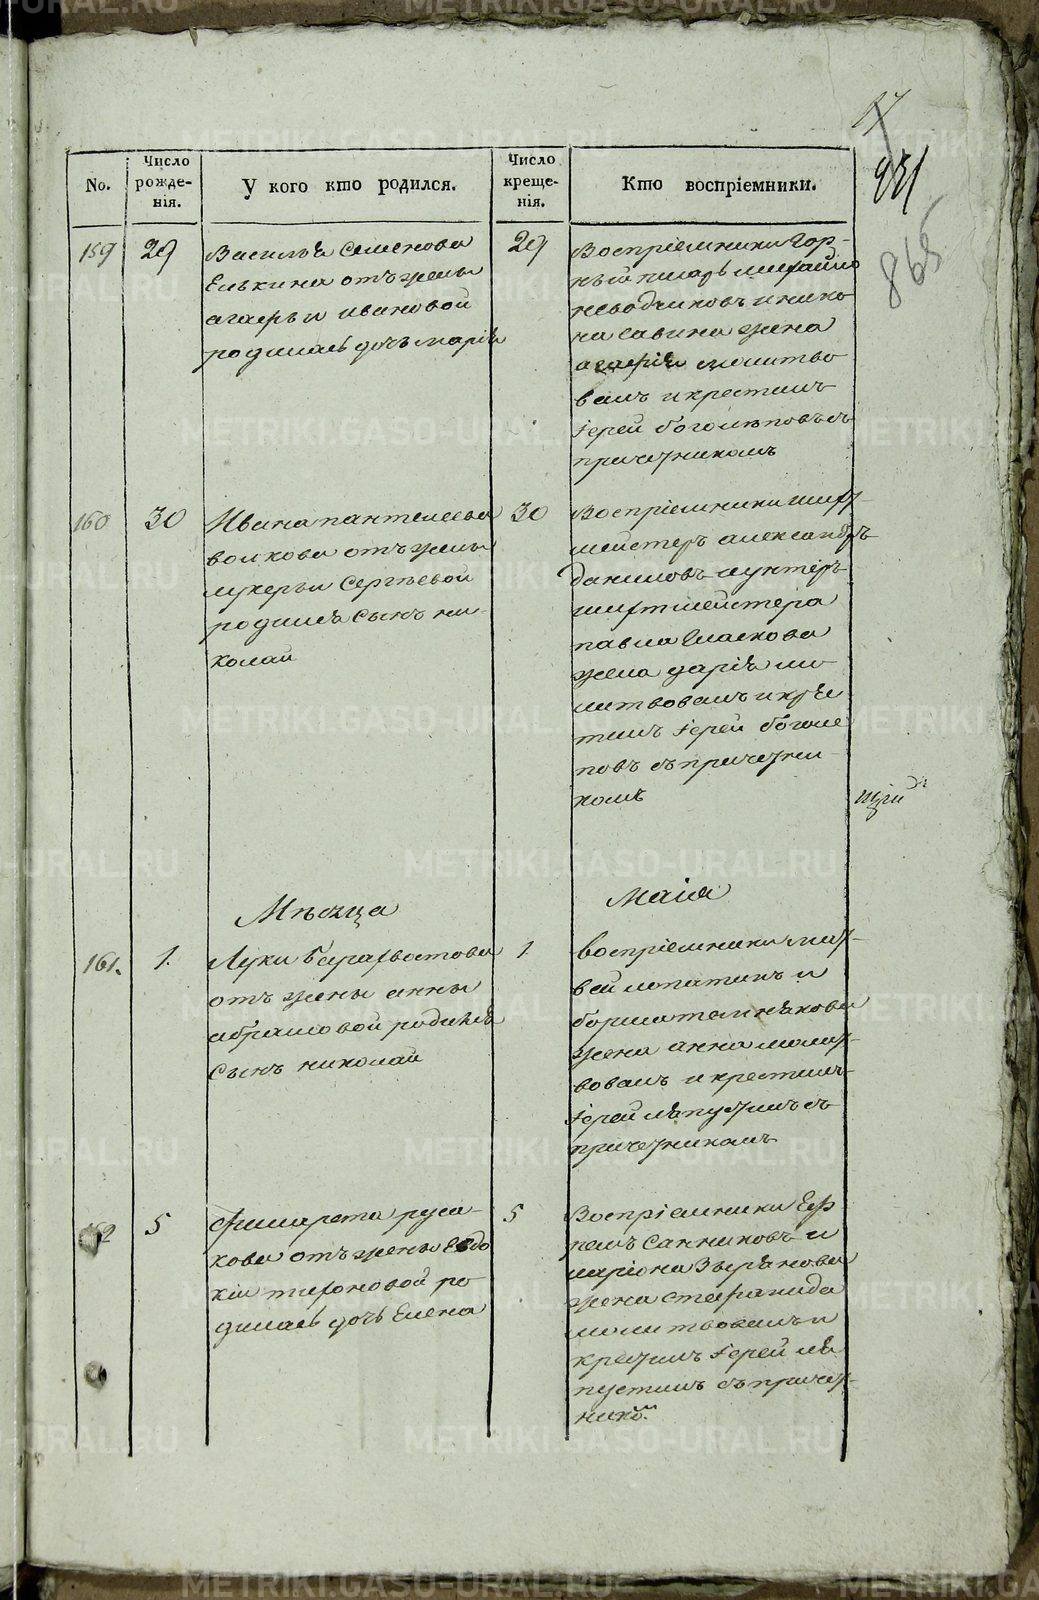 17
931
865
No.
Число рожде-нія.
У кого кто родился.
Число креще-нія.
Кто воспріемники.
159
29
Василья Семенова
Елькина отъ жены
агафьи ивановой
родилась дочь марія
29
Воспріемники гор-
ный писарь михайло
неводчиковъ и нико
на савина жена
агафія молитво
валъ и крестилъ
іерей боголѣповъ съ
причетникомъ
160
30
Ивана пантелеева
волкова отъ жены
лукерьи Сергѣевой
родился сынъ ни-
колай
30
Воспріемники шихт-
мейстеръ александръ
даниловъ и унтеръ
шихтмейстера
павла
жена дарія мо-
литвовалъ и крес
тилъ іерей боголе
повъ съ причетни-
комъ
Мѣсяца
Маія
161.
1.
Луки Барахвостова
отъ жены анны
абрамовой родился
сынъ николай
1
воспріемники мат-
вей лопатинъ и
жена анна молит-
вовалъ и крестилъ
іерей лѣпустинъ съ
причетникомъ
162
5
Филарета руса-
кова отъ жены Евдо
кіи тихоновой ро-
дилась дочь Елена
5
Воспріемники Еф
ремъ Санниковъ и
ларіона Зырянова
жена стефанида
молитвовалъ и
крестилъ іерей лѣ
пустинъ съ причет-
никомъ
METRIKI.GASO-URAL.RU